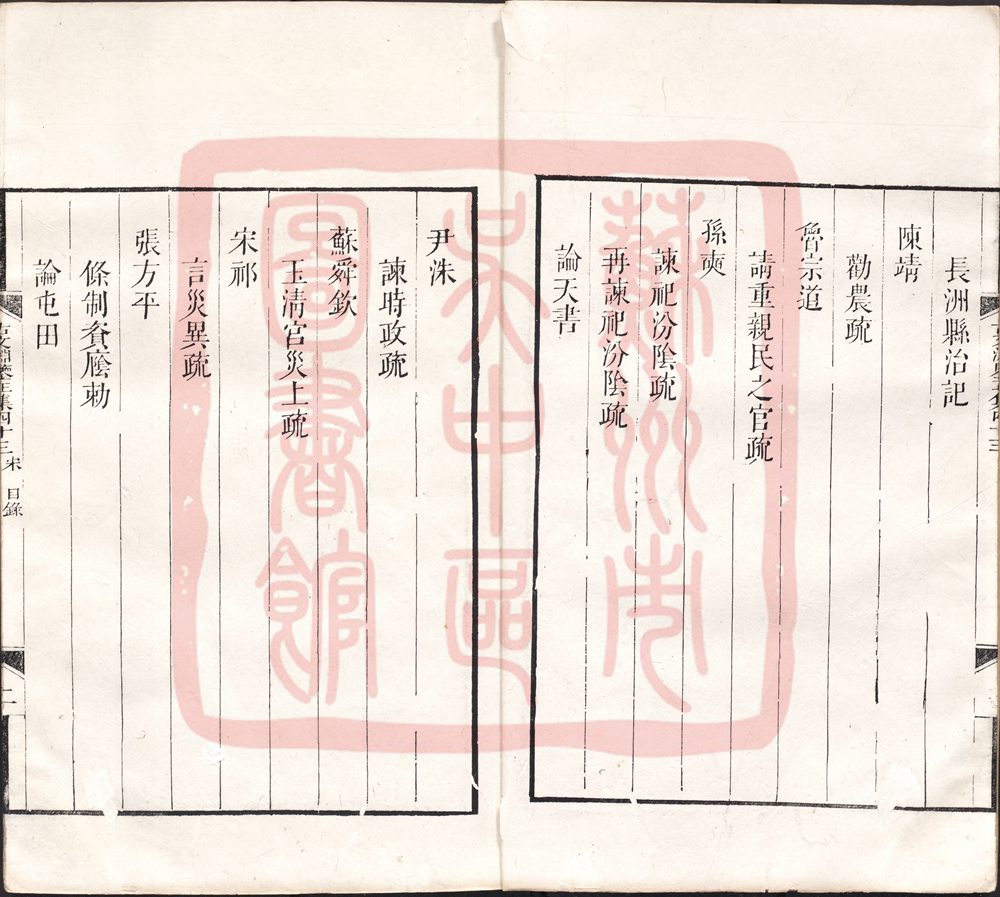 長洲縣治記
陳靖
勸農疏
魯宗道
請重親民之官疏
孫奭
諫祀汾陰疏
再諫祀汾陰疏
論天書
尹洙
諫時政疏
蘇舜欽
玉清宮災上疏
宋祁
言災異疏
張方平
條制資廕勅
論屯田
古文淵鑒正集卷四十三 宋 目錄
二
蘇州市
吴中區
圖書館